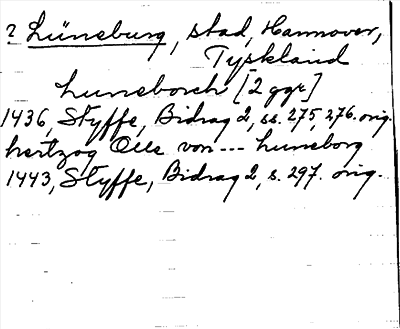 ? Lüneburg, stad, Hannover,
Tyskland
Luneborch [2 ggr]
1436, Styffe, Bidrag 2, ss. 275, 276. orig.
hertzog Otte von --- Luneborg
1443, Styffe, Bidrag 2, s. 297. orig.